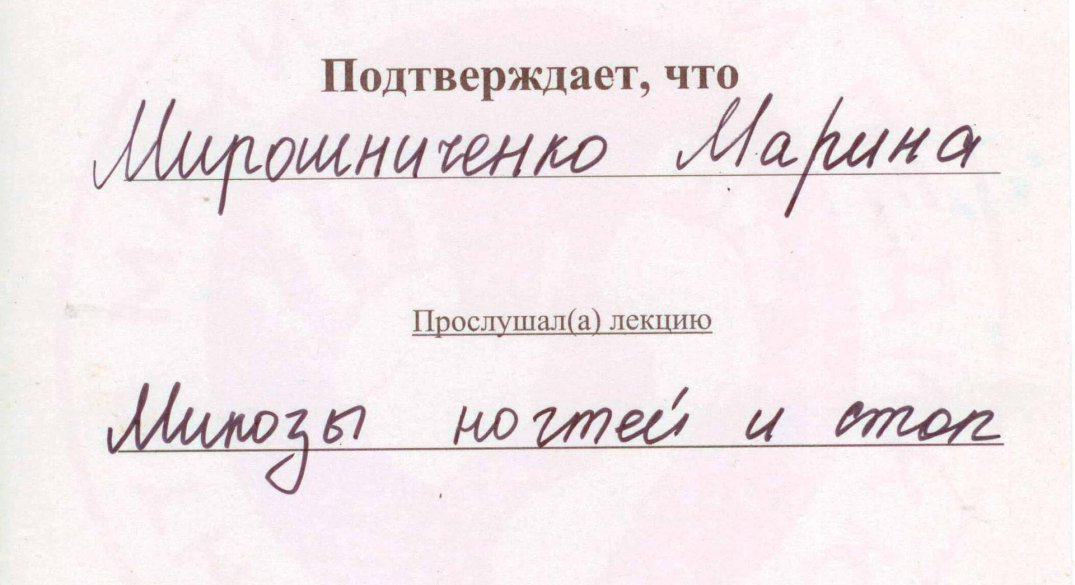 Подтверждает, что
Мирошниченко Марина
Прослушал(а) лекцию
Микозы ногтей и стоп